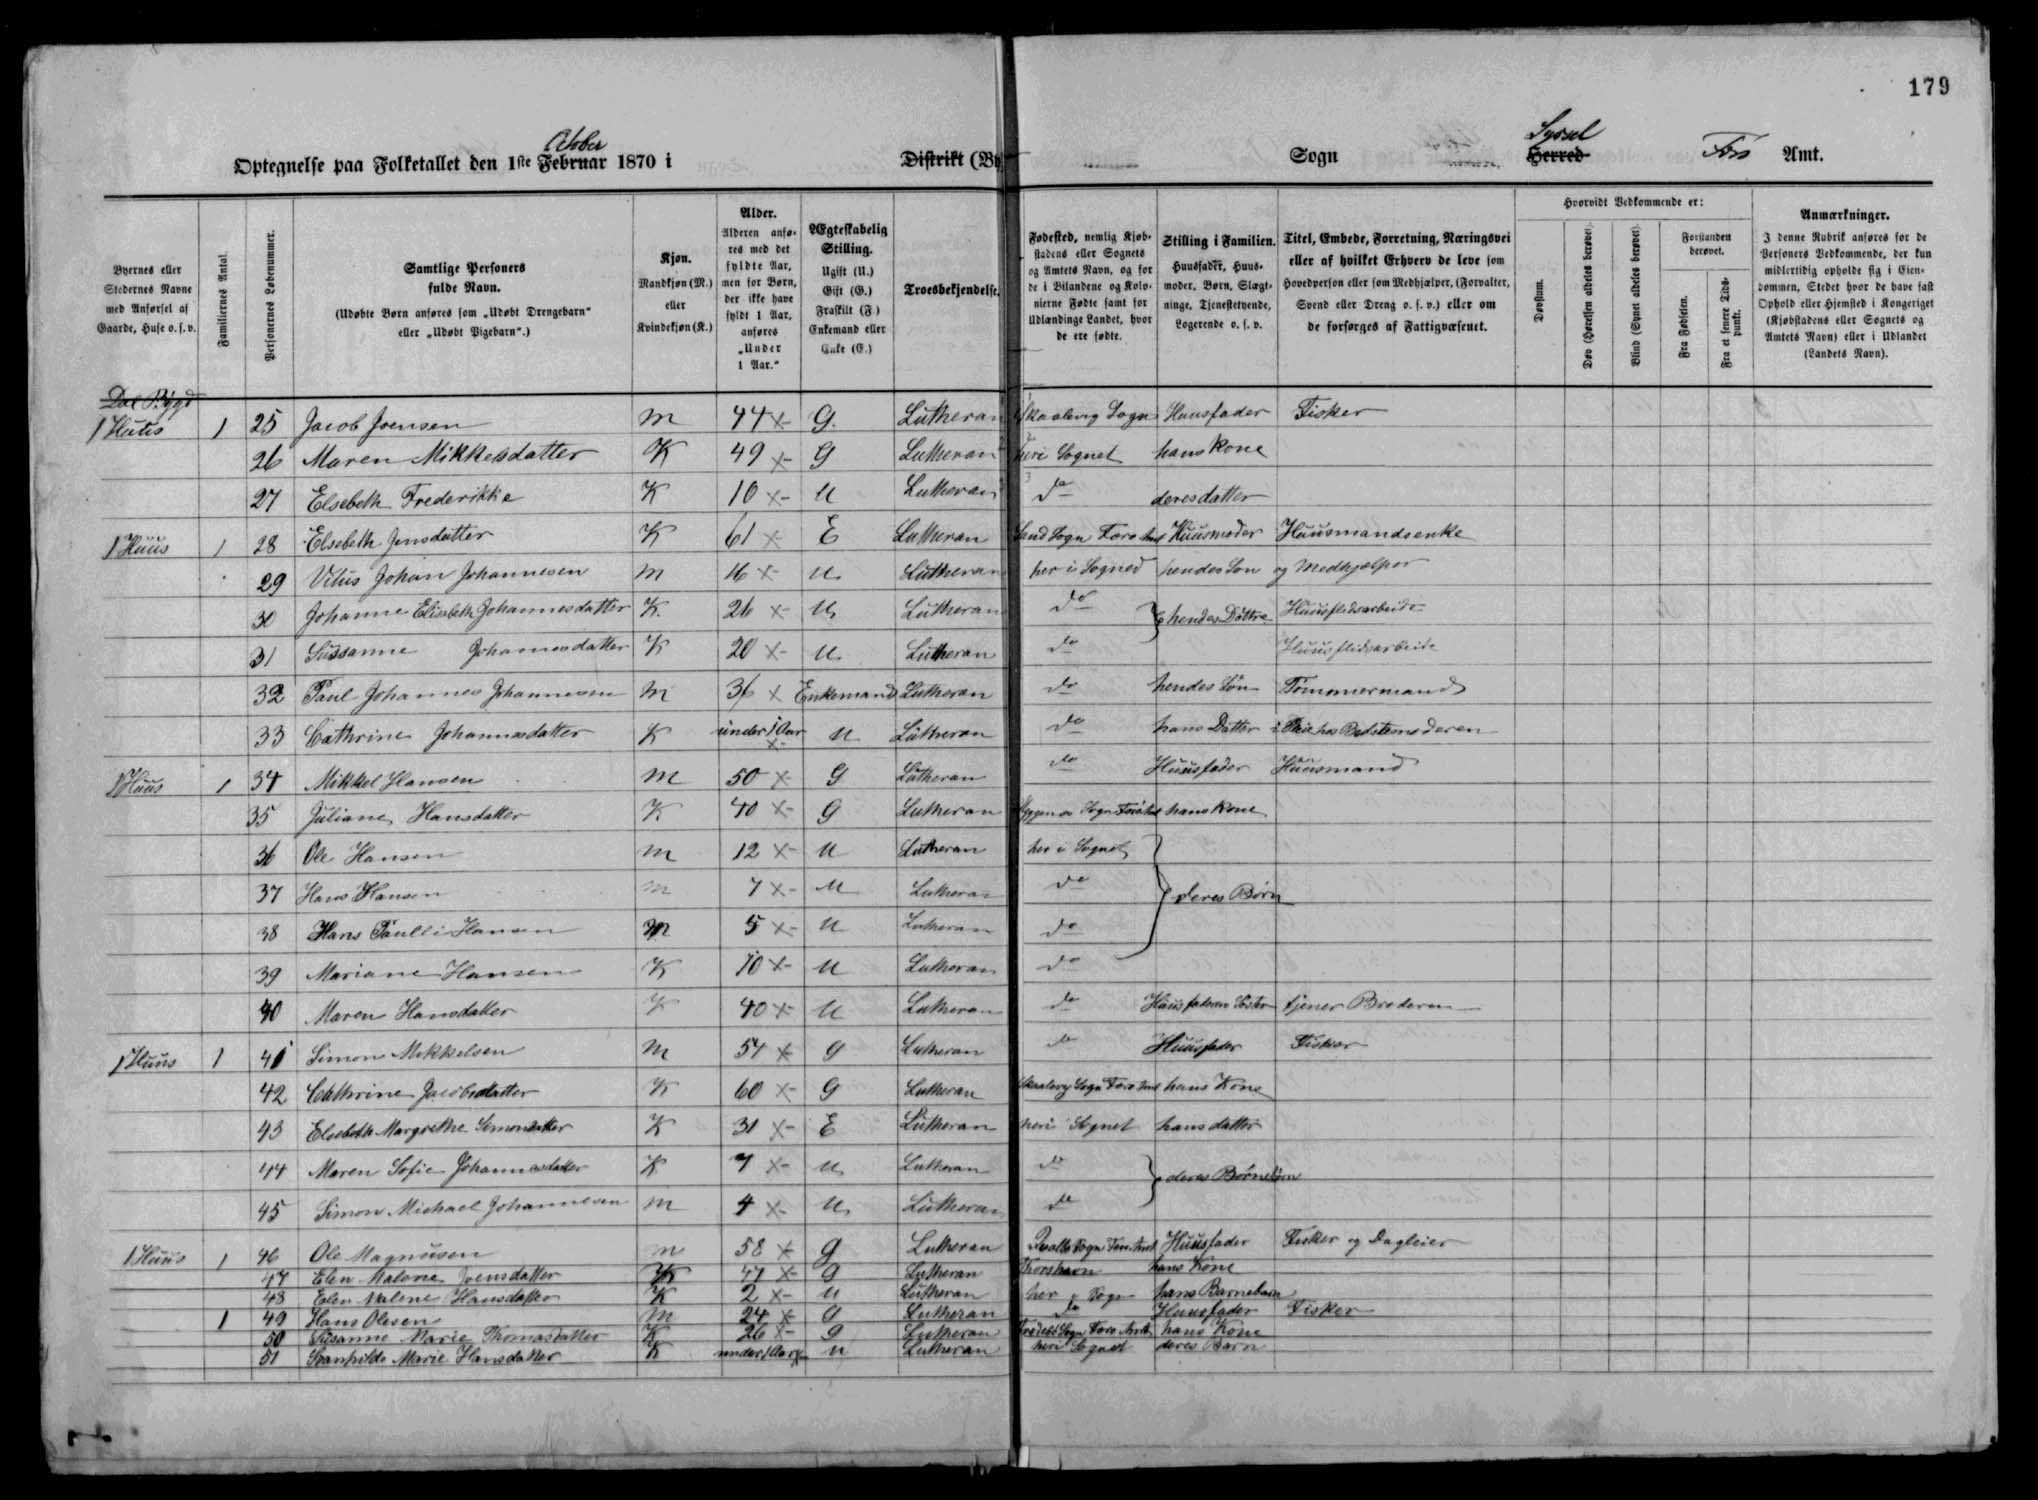 179
October
Syssel
Optegnelse paa Folketallet den 1ste Februar 1870 i Distrikt (By Sogn Herred Færø Amt.
Byernes eller Stedernes Navne med Anførsel af Gaarde, Huse o. s. v.
Familiernes Antal.
Personernes Løbenummer.
Samtlige Personers fulde Navn.
(Udøbte Børn anføres som „Udøbt Drengebarn" eller „Udøbt Pigebarn".)
Kjøn.
Mandkjøn (M.) eller Kvindekjøn (K.)
Alder.
Alderen anføres med det fyldte Aar, men for Børn, der ikke have fyldt 1 Aar, anføres „Under 1 Aar."
Ægteskabelig Stilling.
Ugift (U.) Gift (G.) Fraskilt (F.) Enkemand eller Enke (E.)
Troesbekjendelse.
Fødested, nemlig Kjøbstadens eller Sognets og Amtets Navn, og for de i Bilandene og Kolonierne Fødte samt for Udlændinge Landet, hvor de ere fødte.
Stilling i Familien.
Huusfader, Huusmoder, Børn, Slægtninge, Tjenestetyende, Logerende o. s. v.
Titel, Embede, Forretning, Næringsvei eller af hvilket Erhverv de leve som Hovedperson eller som Medhjælper, (Forvalter, Svend eller Dreng o. s. v.) eller om de forsørges af Fattigvæsenet.
Hvorvidt Vedkommende er:
Døvstum.
Døv (Hørelsen aldeles berøvet).
Blind (Synet aldeles berøvet).
Forstanden berøvet.
Fra Fødselen.
Fra et senere Tidspunkt.
Anmærkninger.
I denne Rubrik anføres for de Personers Vedkommende, der kun midlertidig opholde sig i Eiendommen, Stedet hvor de have fast Ophold eller Hjemsted i Kongeriget (Kjøbstadens eller Sognets og Amtets Navn) eller i Udlandet (Landets Navn).
Dal Bygd
1 Huus 1 25 Jacob Joensen M 44 x G. Lutheran Skaalevig Sogn Huusfader Fisker
26 Maren Mikkelsdatter K 49 x G Lutheran heri Sognet hans Kone
27 Elsebeth Frederikke K 10 x U Lutheran do deres datter
1 Huus 1 28 Elsebeth Jensdatter K 61 x E Lutheran Sand Sogn Færø Amt Huusmoder Huusmandsenke
29 Vitus Johan Johannesen M 16 x U Lutheran her i Sogned hendes Søn og Medhjælper
30 Johanne Elisabeth Johannesdatter K 26 x U Lutheran do hendes Døttre Huusflidsarbeide
31 Sussanne Johannesdatter K 20 x U Lutheran do Huusflidsarbeide
32 Paul Johannes Johannesen M 36 x Enkemand Lutheran do hendes Søn Tømmermand
33 Cathrine Johannesdatter K under 1 Aar x U Lutheran do hans Datter i Pleie hos Bedstemoderen
1 Huus 1 34 Mikkel Hansen M 50 x G Lutheran do Huusfader Huusmand
35 Juliane Hansdatter K 40 x G Lutheran Sogn Færø Amt hans Kone
36 Ole Hansen M 12 x U Lutheran her i Sognet
37 Hans Hansen M 7 x U Lutheran do deres Børn
38 Hans Paulli Hansen M 5 x U Lutheran do
39 Mariane Hansen K 10 x U Lutheran do
40 Maren Hansdatter K 40 x U Lutheran do Huusfaderens Søster tjener Broderen
1 Huus 1 41 Simon Mikkelsen M 54 x G Lutheran do Huusfader Fisker
42 Cathrine Jacobsdatter K 60 x G Lutheran Skaalevig Sogn Færø Amt hans Kone
43 Elsebeth Margrethe Simonsdatter K 31 x E Lutheran heri Sognet hans datter
44 Maren Sofie Johannesdatter K 7 x U Lutheran do deres Børnebørn
45 Simon Michael Johannesen M 4 x U Lutheran do
1 Huus 1 46 Ole Magnusen M 58 x G Lutheran Qvalbø Sogn Færø Amt Huusfader Fisker og Dagleier
47 Elen Malene Joensdatter K 47 x G Lutheran Thorshavn hans Kone
48 Elen Malene Hansdatter K 2 x U Lutheran her i Sogn hans Barnebarn
1 49 Hans Olesen M 24 x G Lutheran do Huusfader Fisker
50 Susanne Marie Thomasdatter K 26 x G Lutheran Sogn Færø Amt hans Kone
51 Svanhilde Marie Hansdatter K under 1 Aar x U Lutheran heri Sognet deres Barn